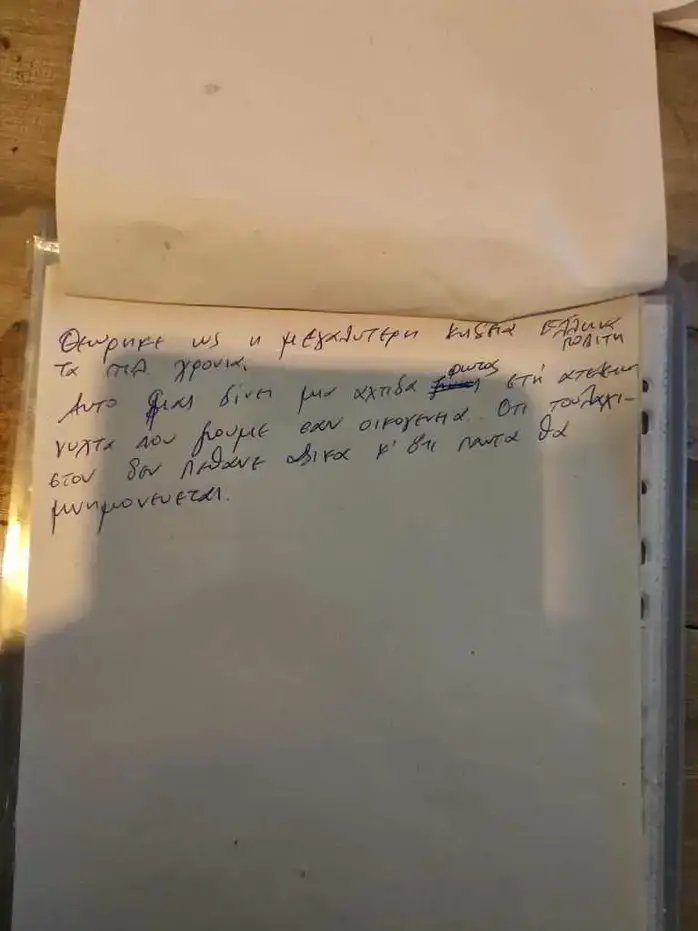 Θεωρηκε ως η μεγαλυτερη κηδεια Ελληνα πολιτη
τα τελ. χρονια.
Αυτο μας δινει μια αχτιδα φωτος στη ατελειωτη
νυχτα που βιουμε σαν οικογενεια. Οτι τουλαχι-
στον δεν πεθανε αδικα κ' οτι παντα θα
μνημονευεται.